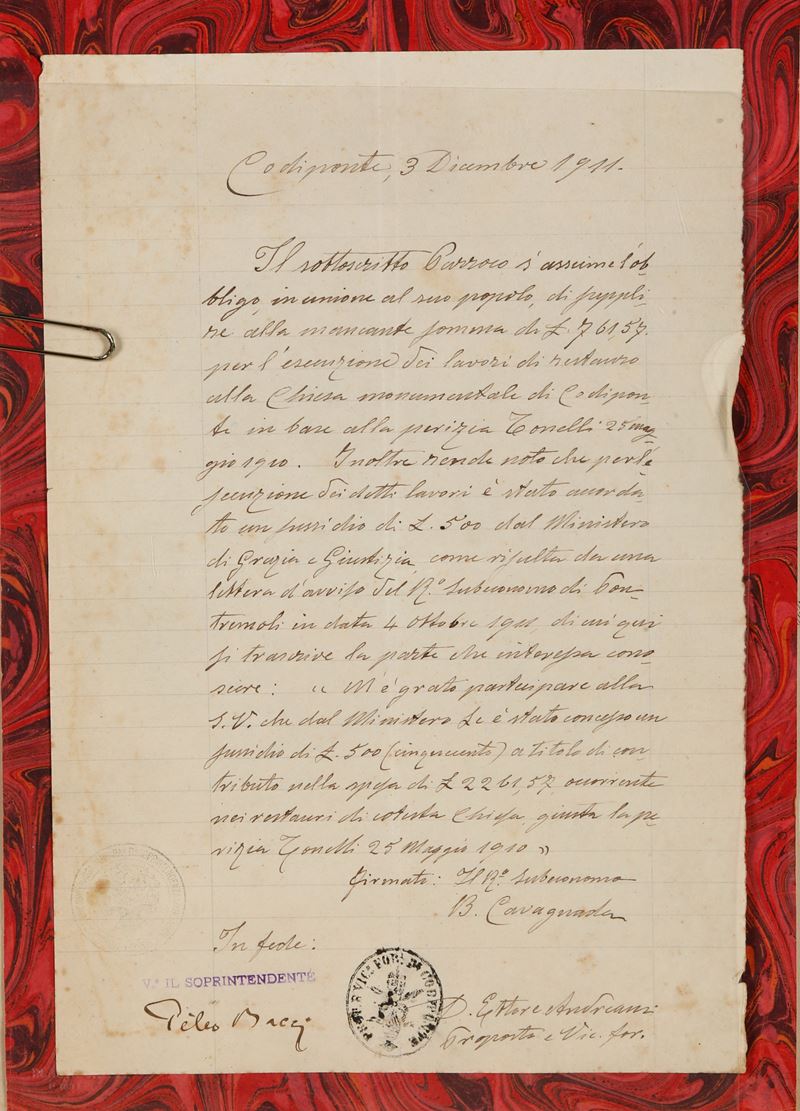 Codiponte, 3 Dicembre 1911.
Il sottoscritto Parroco s'assume l'ob-
bligo, in unione al suo popolo, di suppli-
re alla mancante somma di £. 761,57.
per l'esecuzione dei lavori di restauro
alla Chiesa monumentale di Codipon-
te in base alla perizia Tonelli 25 mag-
gio 1910. Inoltre rende noto che per l'e-
secuzione dei detti lavori è stato accorda-
to un sussidio di £. 500 dal Ministero
di Grazia e Giustizia, come risulta da una
lettera d'avviso del R.º Subeconomo di Pon-
tremoli in data 4 Ottobre 1911, di cui qui
si trascrive la parte che interessa cono-
scere: « M'è grato partecipare alla
S.V. che dal Ministero Le è stato concesso un
sussidio di £. 500 (cinquecento) a titolo di con-
tributo nella spesa di £ 2261,57 occorrente
nei restauri di cotesta Chiesa, giusta la pe-
rizia Tonelli 25 Maggio 1910 »
Firmato: Il R.º Subeconomo
B. Cavagnada
In fede:
V.º IL SOPRINTENDENTE
Pèleo Bacci
D. Ettore Andreani
Proposto e Vic. for.